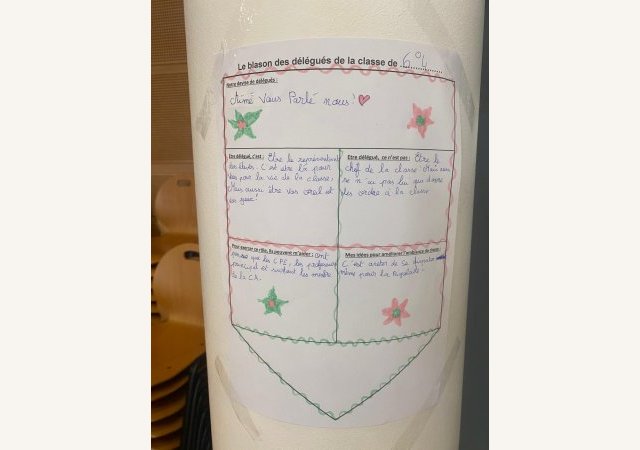 Le blason des délégués de la classe de 6°4
Notre devise de délégués :
Aimé Vous Parlé nous !
Etre délégué, c'est : Etre le représentant
des élèves. C est etre là pour
par la vie de la classe,
Mais aussi être vos oreil et
vos yeux !
Etre délégué, ce n'est pas : Etre le
chef de la classe. Mais
ce n'ai pas lui qui donne
des ordre à la classe
Pour exercer ce rôle, ils peuvent m'aider :
que les CPE, les professeur
principal et surtout les
de la CR.
Mes idées pour améliorer l'ambiance de classe :
C est arêter de se
même pour la